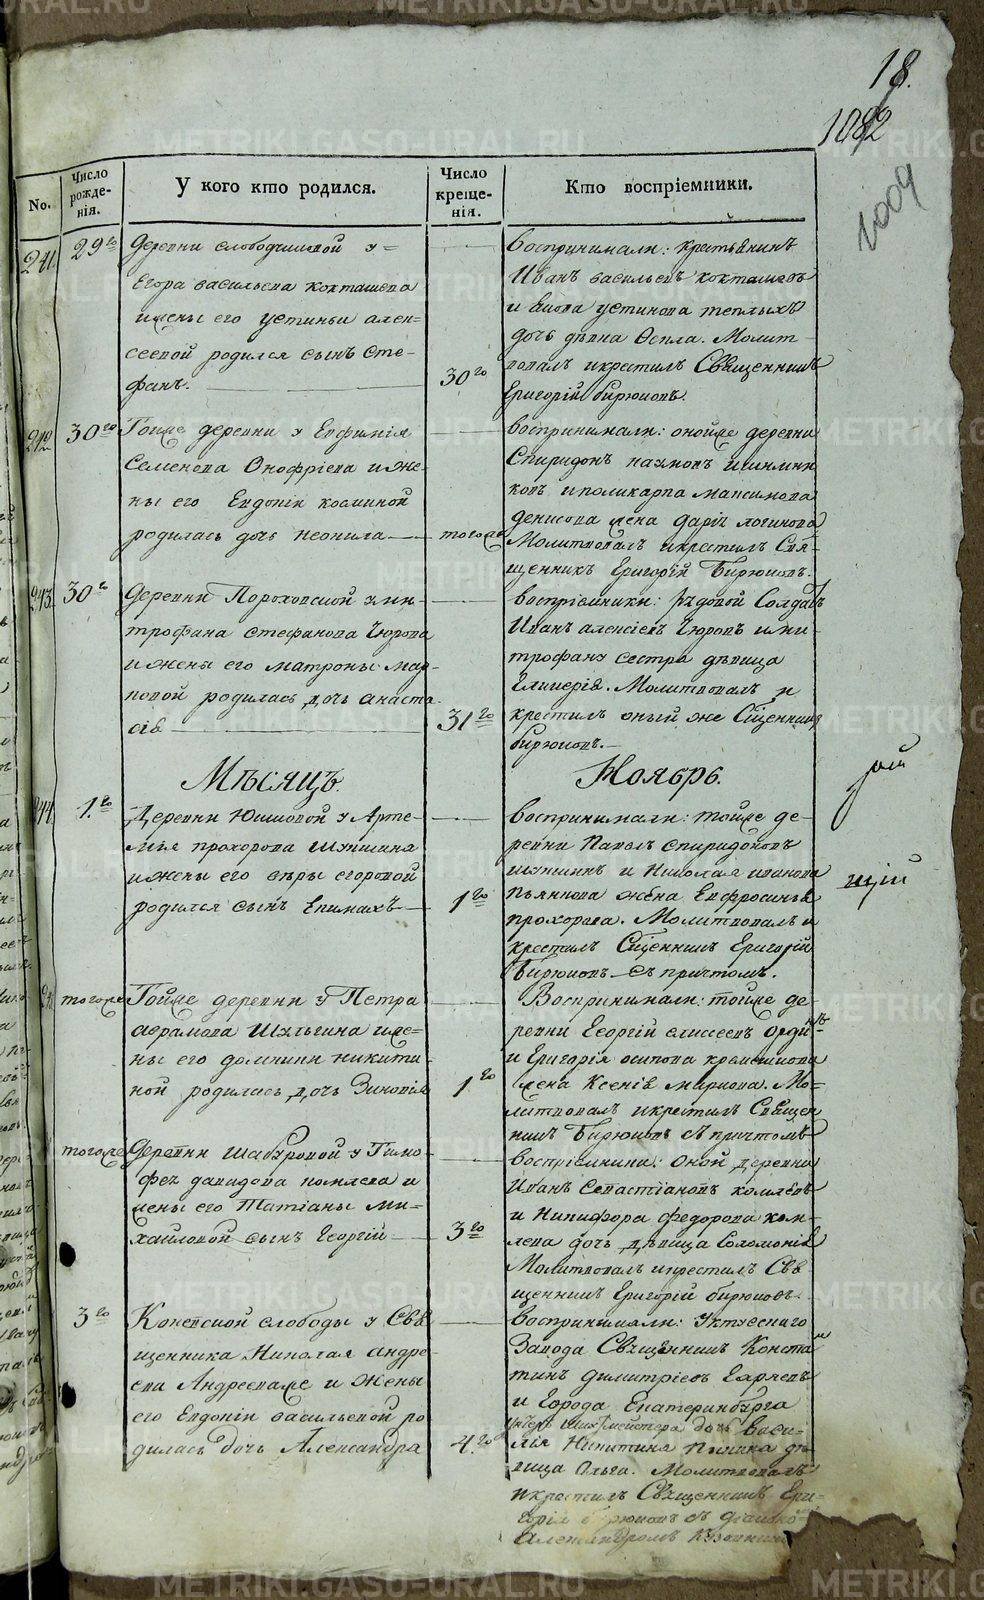 18.
1082
1009
No.
Число рожде-
нія.
У кого кто родился.
Число креще-
нія.
Кто воспріемники.
241.
29го
Деревни слободчиковой у
Егора васильева кокташева
и жены его устиньи алек-
сеевой родился сынъ Сте-
фанъ.
30го
воспринимали: крестьянинъ
Иванъ васильевъ кокташевъ
и устинова теплыхъ
дочь дѣвка Молит-
вовалъ и крестилъ Священникъ
Григорій бирюковъ.
242
30го
Тойже деревни у Евфимія
Семенова Онофріева и же-
ны его Евдокіи космин​ой
родилась дочь неонила
тогоже
воспринимали: онойже деревни
Спиридонъ
и поликарпа максимова
денисова жена дарья логинова
Молитвовалъ и крестилъ Свя-
щенникъ Григорій Бирюковъ.
243.
30го
Деревни Пороховской у ми-
трофана стефанова Чюрова
и жены его матроны мар-
ковой родилась дочь анаста-
сія
31го
воспріемники: рядовой Солдатъ
Иванъ алексіевъ Чюровъ и ми-
трофана сестра дѣвица
Гликерія. Молитвовалъ и
крестилъ оный же Сщенникъ
бирюковъ.
Мѣсяцъ.
Ноябрь.
244
1го
Деревни Юшковой у Арте-
мія прохорова шупшина
и жены его вѣры егоровой
родился сынъ Епимахъ
1го
воспринимали: тойже де-
ревни Павелъ спиридоновъ
и Николая иванова
пьянкова жена Евфросинья
прохорова. Молитвовалъ и
крестилъ Сщенникъ Григорій
Бирюковъ съ причтомъ.
тогоже
Тойже деревни у Петра
абрамова Шульгина и же-
ны его домники никити-
ной родилась дочь Зиновія
1го
Воспринимали: тойже де-
ревни Георгій елисеевъ
и Григорія осипова
жена Ксенія маркова. Мо-
литвовалъ и крестилъ Священ-
никъ Бирюковъ съ причтомъ
тогоже
Деревни Шабуровой у Тимо-
фея давидова комлева и
жены его Татіаны ми-
хайловой сынъ Георгій
3го
воспріемники: Оной деревни
Иванъ Севастіановъ комлевъ
и Никифора федорова ком-
лева дочь дѣвица Соломонія
Молитвовалъ и крестилъ Свя-
щенникъ Григорій бирюковъ.
3го
Коневской слободы у Свя-
щенника Николая андре-
ева Андреевыхъ и жены
его Евдокіи васильевой ро-
дилась дочь Александра
4го
воспринимали: Уктусскаго
Завода Священникъ Конста
тинъ димитріевъ
и Города Екатеринбурга
Унтеръ Шихтмейстера дочь Васи-
лія Никитина дѣ-
вица Ольга. Молитвовалъ
и крестилъ Священникъ Гри-
горій бирюковъ съ
александромъ